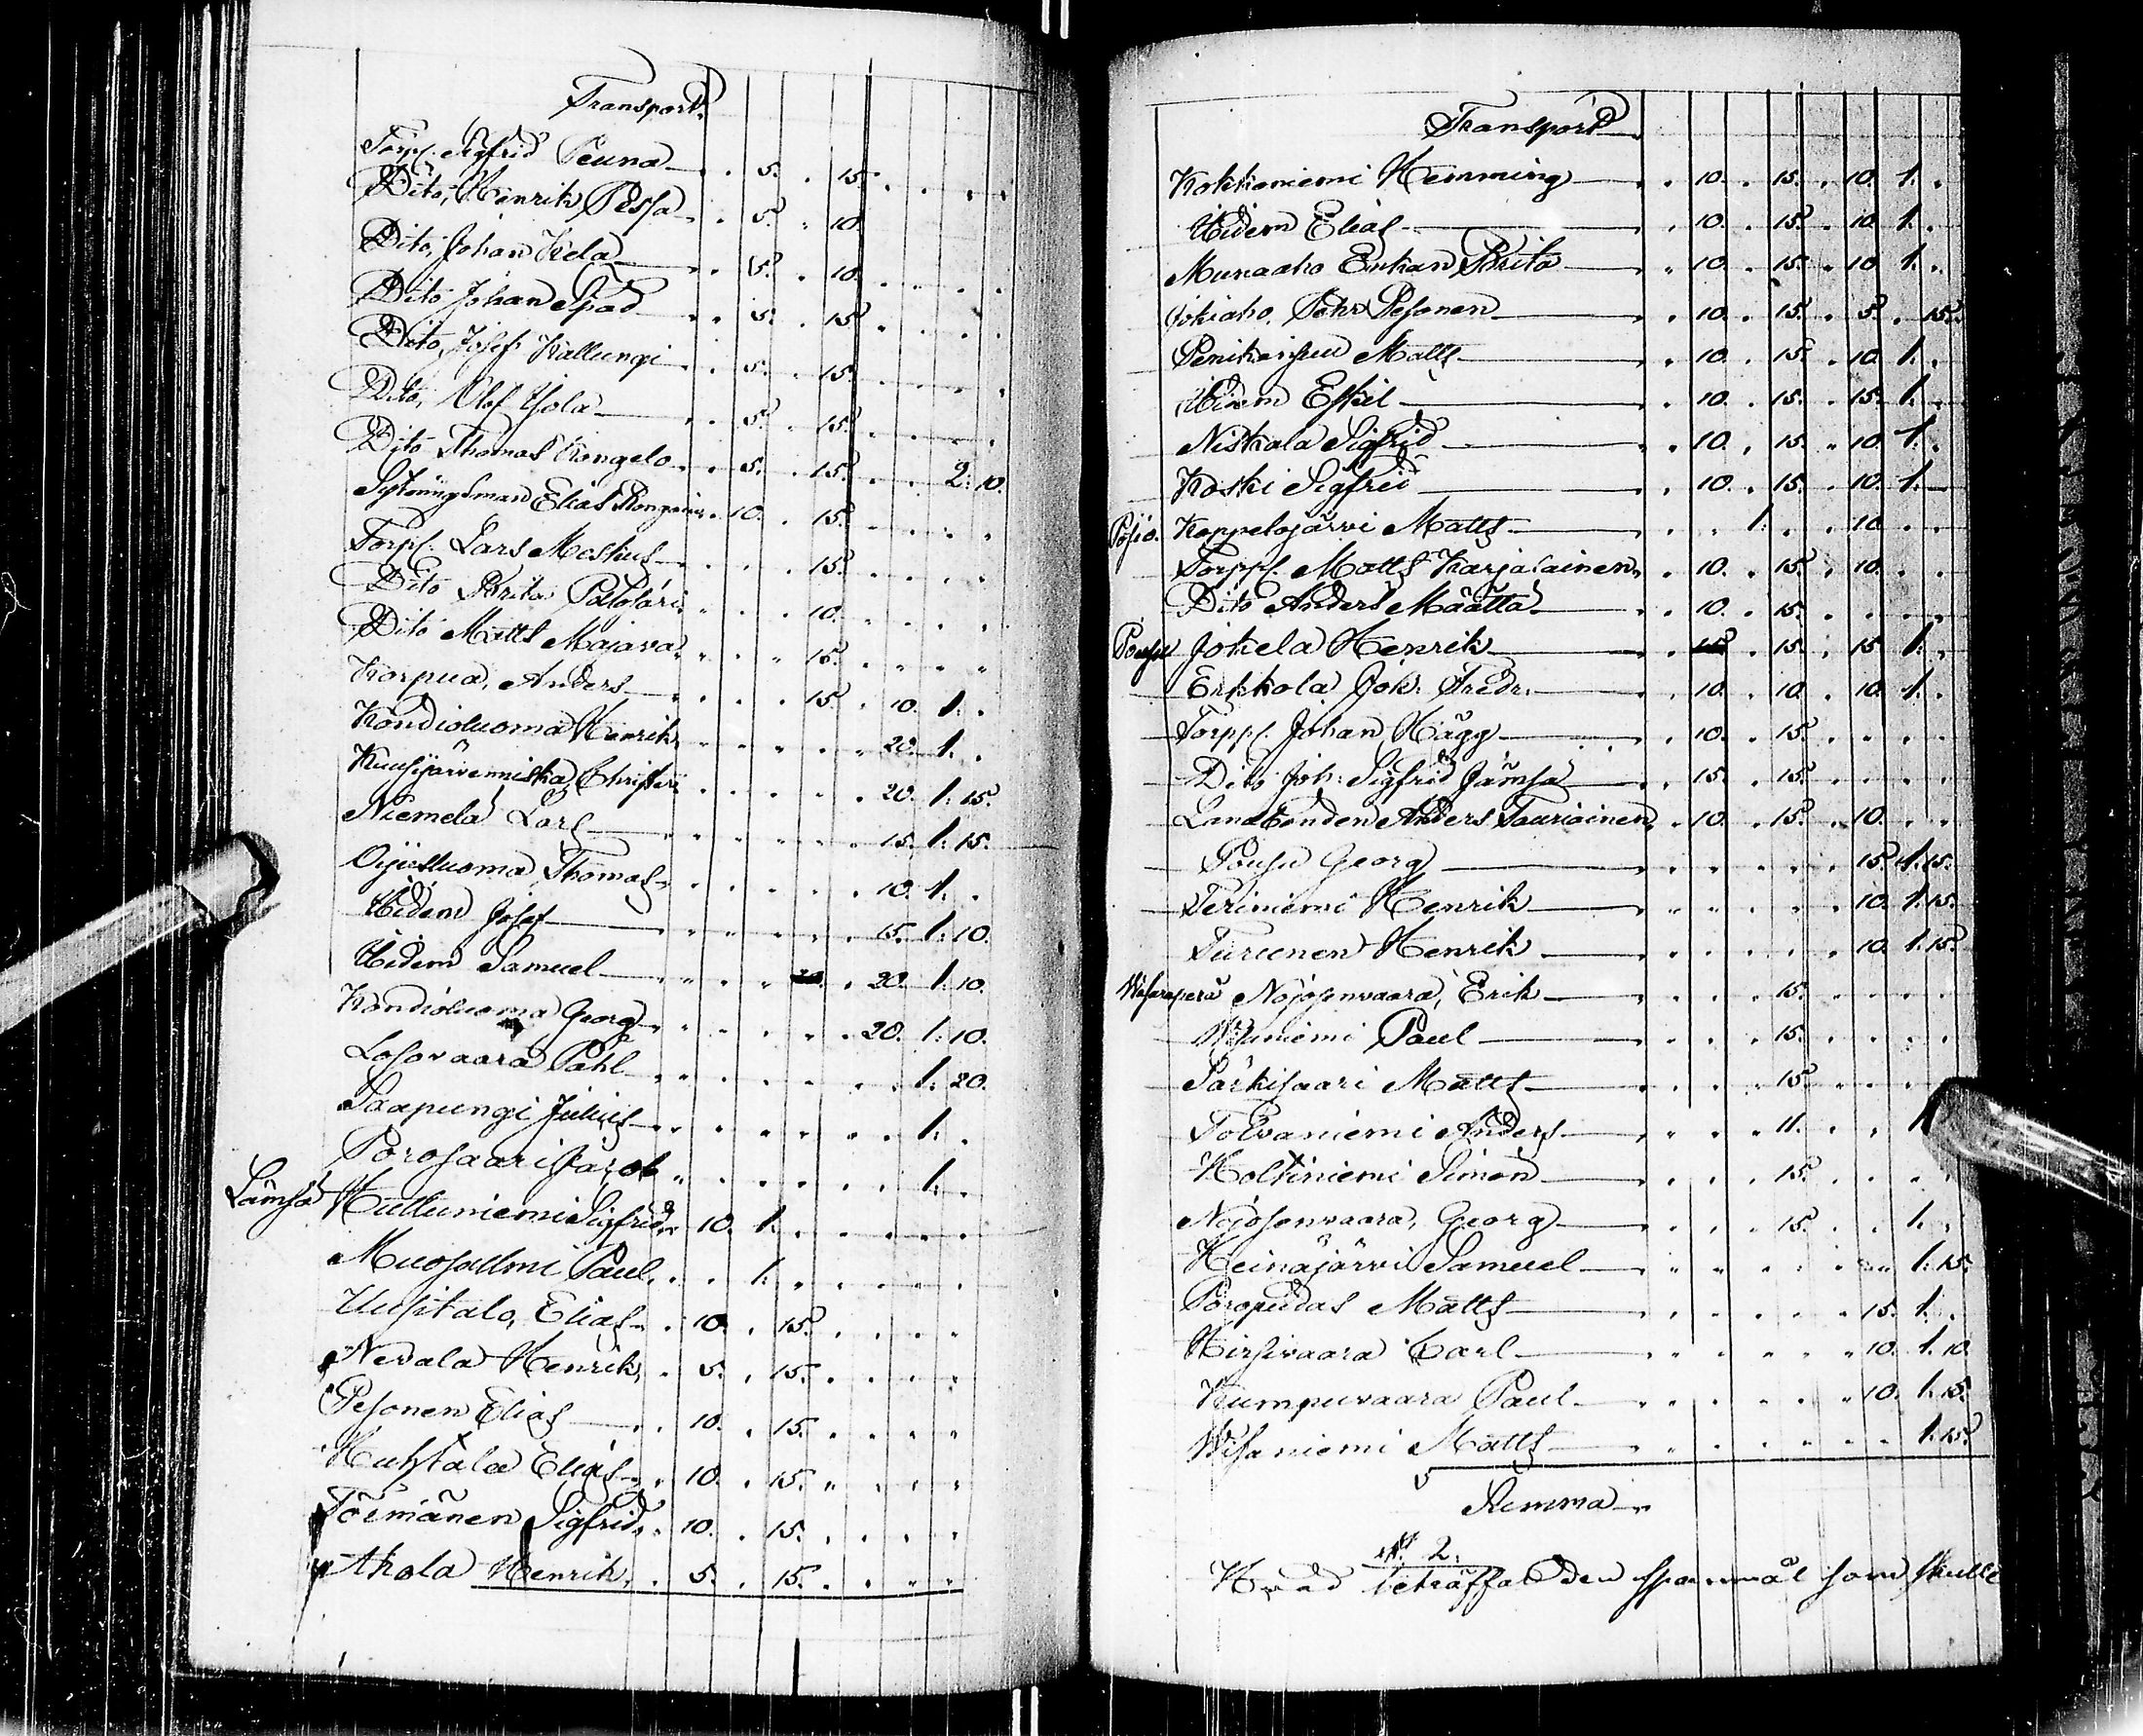 Transport
Torp. Sigfrid Peuna . . 5. . 15. . . . .
Dito, Henrik Pessa . . 5. . 10.
Dito, Johan Kela . . 5. . 10. . . . .
Dito Johan Spad . . 5. . 15. . . . .
Dito, Josef Kallungi . . 5. . 15. . . . .
Dito, Olof Yola . . 5. . 15. . . . .
Dito Thomas Kongelo . . 5. . 15. . . 2. 10.
Elias . 10. . 15. . . . .
Torp. Lars Moskus . . . . 15. . . . .
Dito Brita . . . . 10. . . . .
Dito Matts Majava . . . . 15. . . . .
Korpua, Anders . . . . 15. . 10. 1. .
Kondioluoma Henrik . . . . . . 20. 1. .
Kuusijärvenniska . . . . . . 20. 1. 15.
Niemelä Lars . . . . . . 15. 1. 15.
Thomas . . . . . . 10. 1. .
Idem Josef . . . . . . 15. 1. 10.
Idem Samuel . . . . . 20. 1. 10.
Kondioluoma Georg . . . . . . 20. 1. 10.
Losovaara Påhl . . . . . . . 1. 20.
Saapungi Julius . . . . . . . 1. .
Porosaari Jacob . . . . . . . 1. .
Lämsä Hulluniemi Sigfrid . . 10. 1. . . . . .
Muosalmi Paul . . . 1. . . . . .
Uusitalo, Elias . . 10. . 15. . . . .
Nevala Henrik . . 5. . 15. . . . .
Pesonen Elias . . 10. . 15. . . . .
Huhtala Elias . . 10. . 15. . . . .
Törmänen Sigfrid . . 10. . 15. . . . .
Akola Henrik . . 5. . 15. . . . .
Transport
Kokkoniemi Hemming . . 10. . 15. . 10. 1. .
Idem Elias . . 10. . 15. . 10. 1. .
Munaaho Enkan Brita . . 10. . 15. . 10. 1. .
Jokiaho, Pehr Pesonen . . 10. . 15. . 5. . 15.
Matts . . 10. . 15. . 10. 1. .
Idem Eskil . . 10. . 15. . 15. 1. .
Niskala Sigfrid . . 10. . 15. . 10. 1. .
Koski Sigfrid . . 10. . 15. . 10. 1.
Posio. Koppelojärvi Matts . . . 1. . . 10 . .
Torpp. Matts Karjalainen . . 10. . 15. . 10. . .
Dito Anders Määttä . . 10. . 15. . . . .
Pousu Jokela Henrik . . 15. . 15. . 15 1. .
Erkkola Joh. Fredr. . . 10. . 10. . 10. 1. .
Torpp. Johan Hägg . . 10. . 15. . . . .
Dito Joh: Sigfrid Jämsä . . 15. . 15. . . . .
Landbonden Anders Tauriainen . . 10. . 15. . 10. . .
Pousu Georg . . . . . . 15. 1. 15.
Teriniemi Henrik . . . . . . 10. 1. 15.
Turunen Henrik . . . . . . 10. 1. 15.
Wasaraperä Nojosenvaara, Erik . . . . 15. . . . .
Wisaniemi Paul . . . . 15. . . . .
Särkisaari Matts . . . . 15. . . . .
Tolvaniemi Anders . . . . 11. . . 1
Holtiniemi Simon . . . . 15. . . . .
Nojosenvaara, Georg . . . . 15. . . 1. .
Heinäjärvi Samuel . . . . . . . 1. 15.
Poropudas Matts . . . . . . 15. 1. .
Hirsivaara Carl . . . . . . 10. 1. 10.
Kumpuvaara Paul . . . . . . 10. 1. 15.
Wisaniemi Matts . . . . . . . 1. 15.
Summa
№ 2.
Hvad beträffar den spannmål som skulle